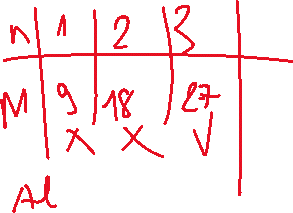 n 1 2 3
M 9 18 27
x x √
Al